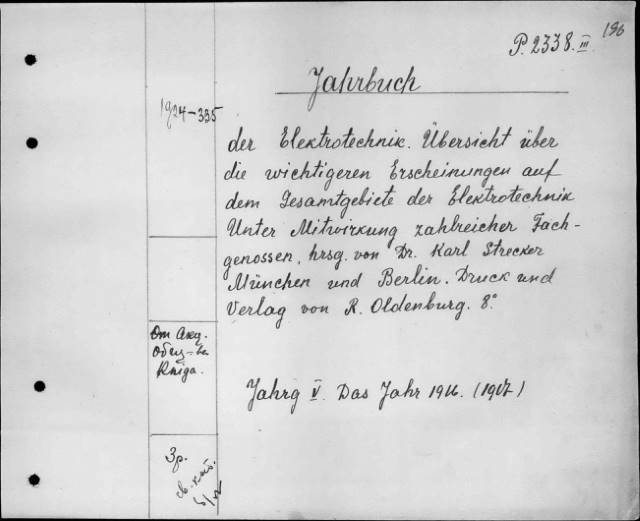 196
P. 2338. III
Jahrbuch
1924-335
der Elektrotechnik. Übersicht über
die wichtigeren Erscheinungen auf
dem Gesamtgebiete der Elektrotechnik
Unter Mitwirkung zahlreicher Fach-
genossen, hrsg. von Dr. Karl Strecker
München und Berlin. Druck und
Verlag von R. Oldenburg. 8°
От Акц.
Общ-ва
Книга.
Jahrg V. Das Jahr 1916. (1917)
3р.